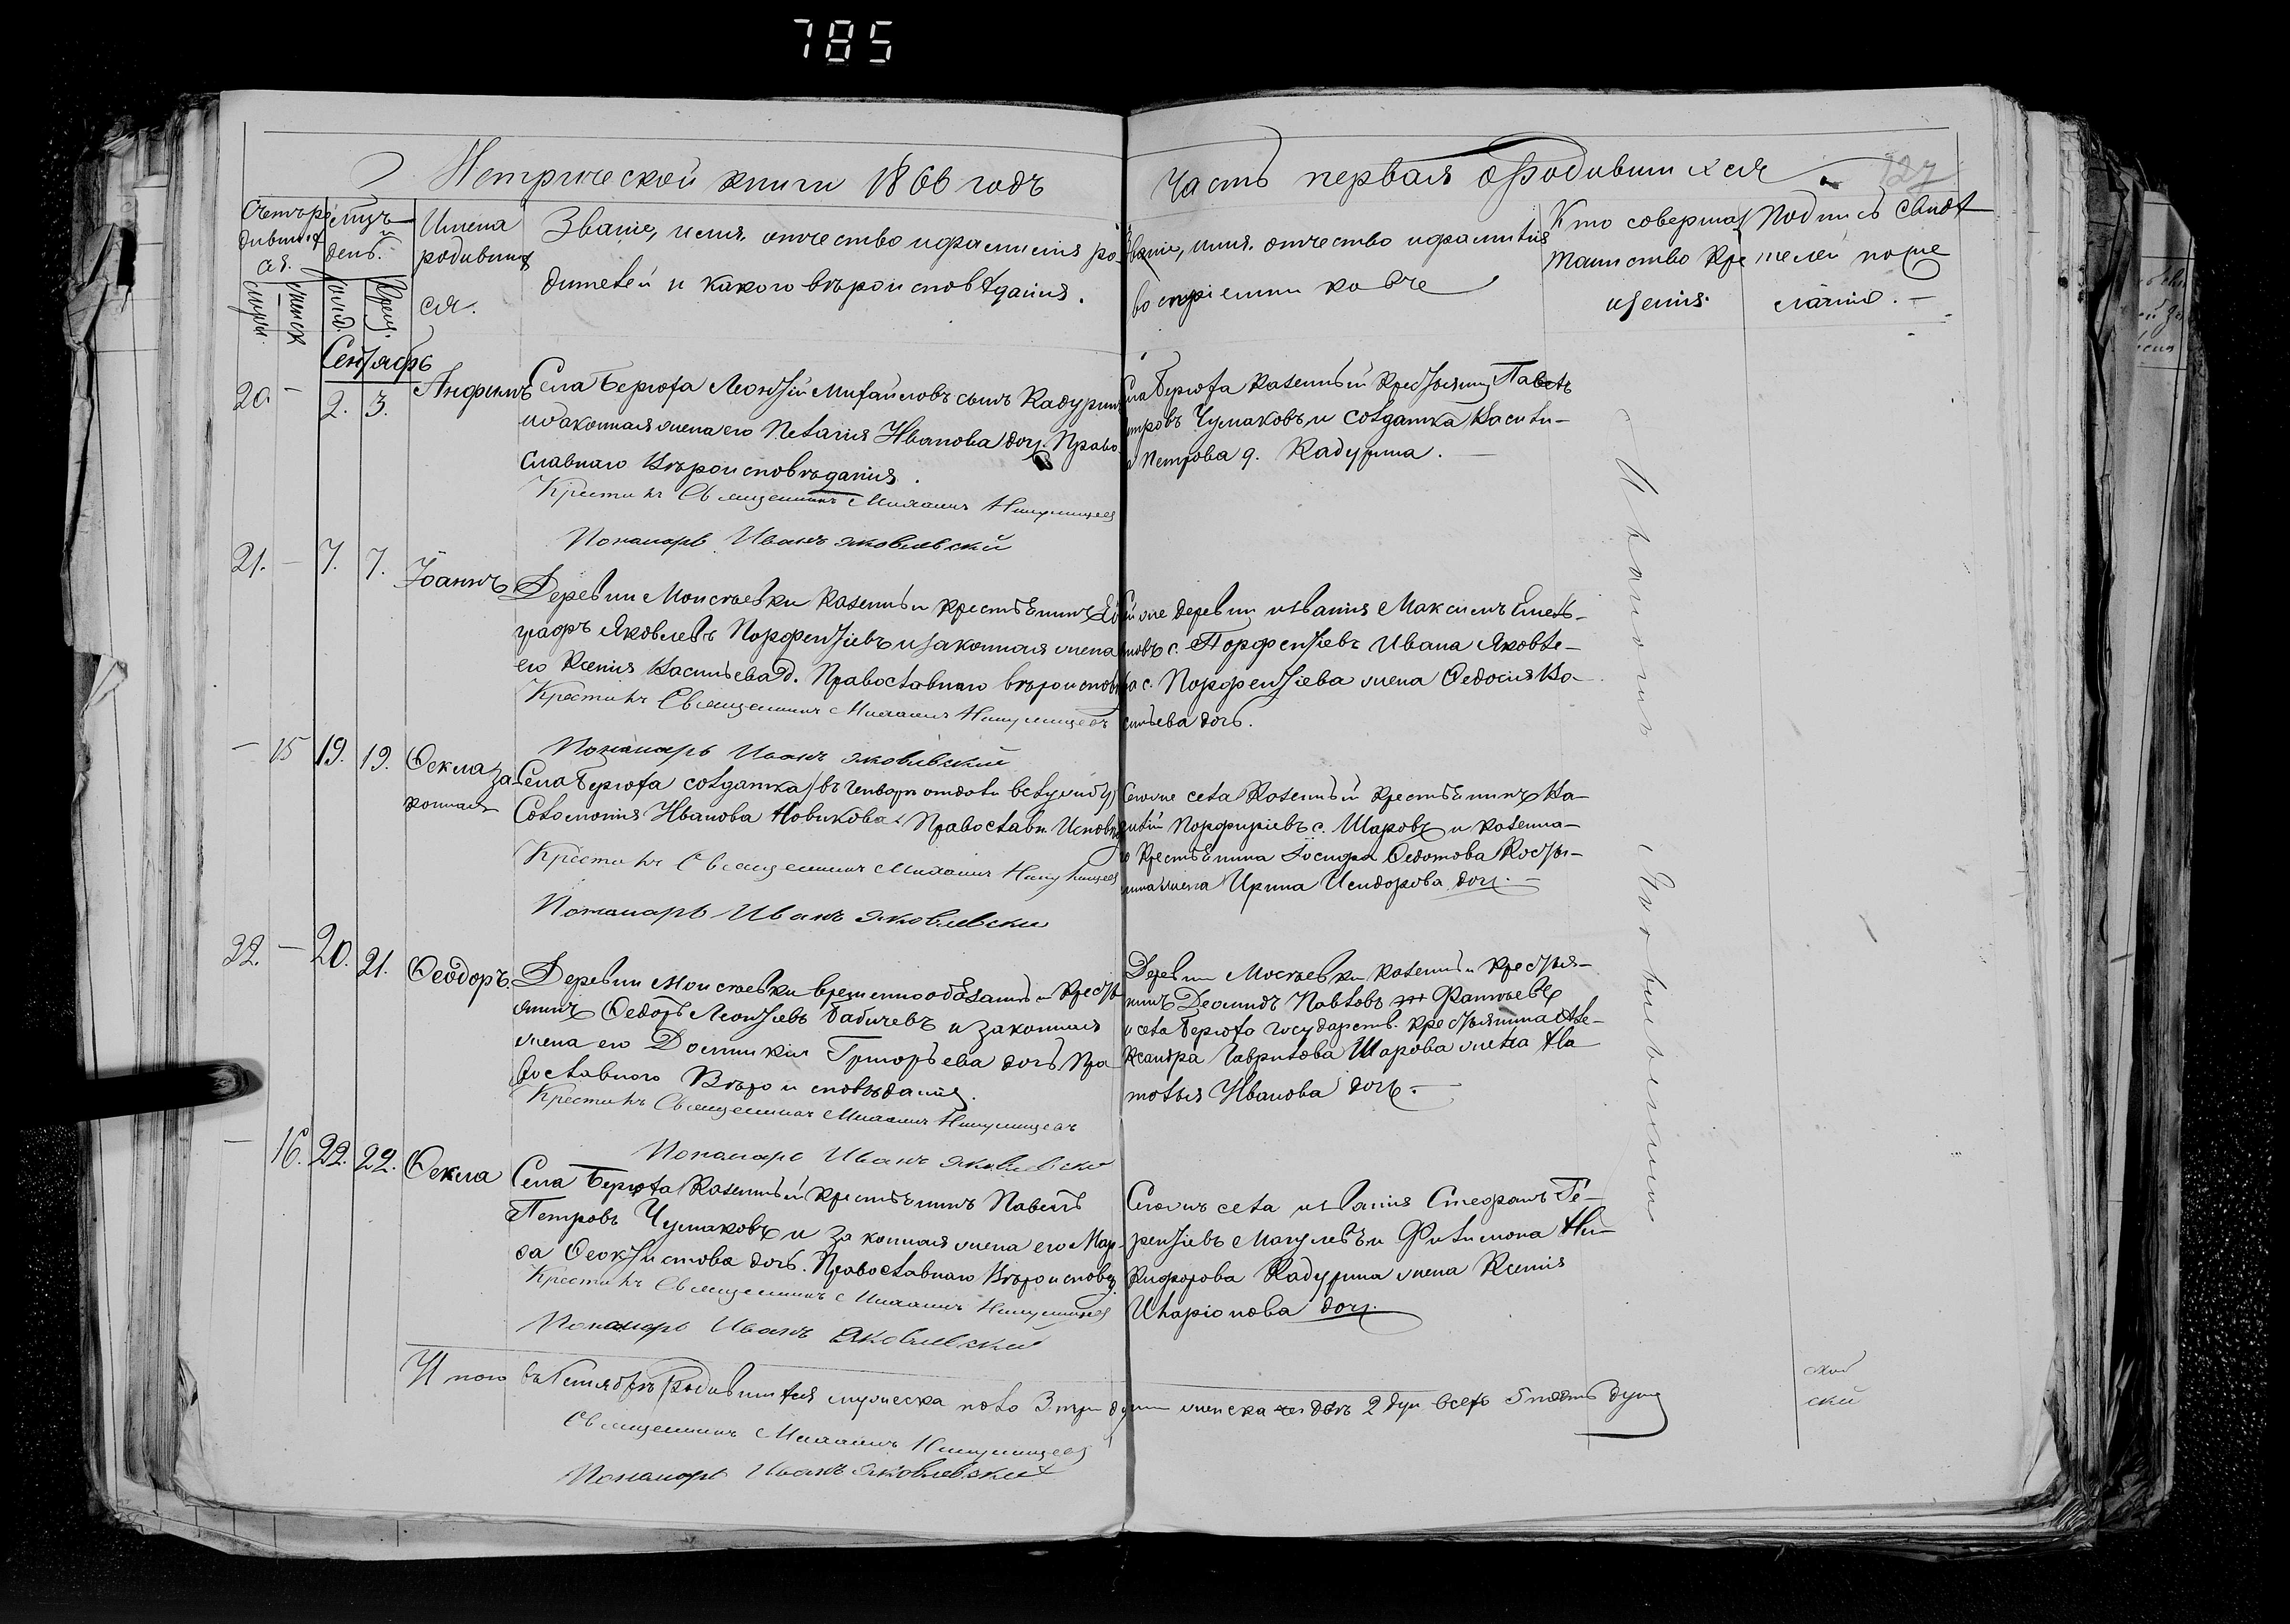 785
Метрической книги 1866 годъ
Часть первая о родившихся
127
Счетъ ро
дившихся
ся.
муж.
женск
Мцъ и
день.
рожд.
Крещ.
Имена
родивших
ся.
Званіе, имя, отчество и фамилія ро-
дителей и какого вѣроисповѣданія.
Званіе, имя, отчество и фамилія
воспріемниковъ
Кто совершал
таинство кре
щенія.
Подпись свидѣ
телей по же
ланію.
Сентябрь
20 - 2. 3. Анфимъ
Села Берюха Леонтій Михайловъ сынъ Кадуринъ
и законная жена его Пелагія Иванова дочь. Право
славнаго Вѣроисповѣданія.
Крестилъ Священникъ Михаилъ
Понамарь Иванъ Яковлевскій
Села Берюха казенный крестьянинъ Павелъ
Петровъ Чумаковъ и солдатка Васили-
са Петрова д. Кадурина.
21. - 7. 7. Іоаннъ
Деревни Моисѣевки казенный крестьянинъ Ев
графъ Яковлевъ Порфентіевъ и законная жена
его Ксенія Васильева д. Православнаго вѣроисповѣ
Крестилъ Священникъ Михаилъ
Понамарь Иванъ Яковлевскій
той же деревни и званія Максимъ Емель-
яновъ с. Порфентіевъ Ивана Яковле-
ва с. Порфентіева жена Ѳедосія Ва-
сильева дочь.
- 15 19. 19. Ѳекла за
конная
Села Берюха солдатка
Соломонія Иванова Новикова Православн. Исповѣд
Крестилъ Священникъ Михаилъ
Понамарь Иванъ Яковлевски
Сегоже села казенный крестьянинъ Ва-
силій Порфиріевъ с. Шаровъ и казенна-
го крестьянина Іосифа Ѳедотова
жена Ирина Исидорова дочь.
22. - 20. 21. Ѳеодоръ.
Деревни Моисѣевки временнообязанный крестья
янинъ Ѳедоръ Леонтьевъ Бабичевъ и законная
жена его Домникія Григорьева дочь Пра
вославнаго Вѣроисповѣданія.
Крестилъ Священникъ Михаилъ
Понамарь Иванъ Яковлевски
Деревни Мосѣевки казенный крестья-
нинъ Деомидъ Павловъ Фатѣевъ
и села Берюха государств. крестьянина Але-
ксандра Гаврилова Шарова жена На
талья Иванова дочь.
- 16. 22. 22. Ѳекла
Села Берюха казенный крестьянинъ Павелъ
Петровъ Чумаковъ и законная жена его Мар-
ѳа Ѳеоктистова дочь. Православнаго Вѣроисповед.
Крестилъ Священникъ Михаилъ
Понамарь Иванъ Яковлевски
Сегожъ села и званія Стефанъ Те-
рентіевъ и Филимона Ни-
кифорова Кадурина жена Ксенія
Иларіонова дочь.
Итого въ Сентябрѣ родившихся мужеска пола 3 три души женска 2 душ всехъ 5 пять душъ
Священникъ Михаилъ
Понамарь Иванъ Яковлевскій
ской
ски